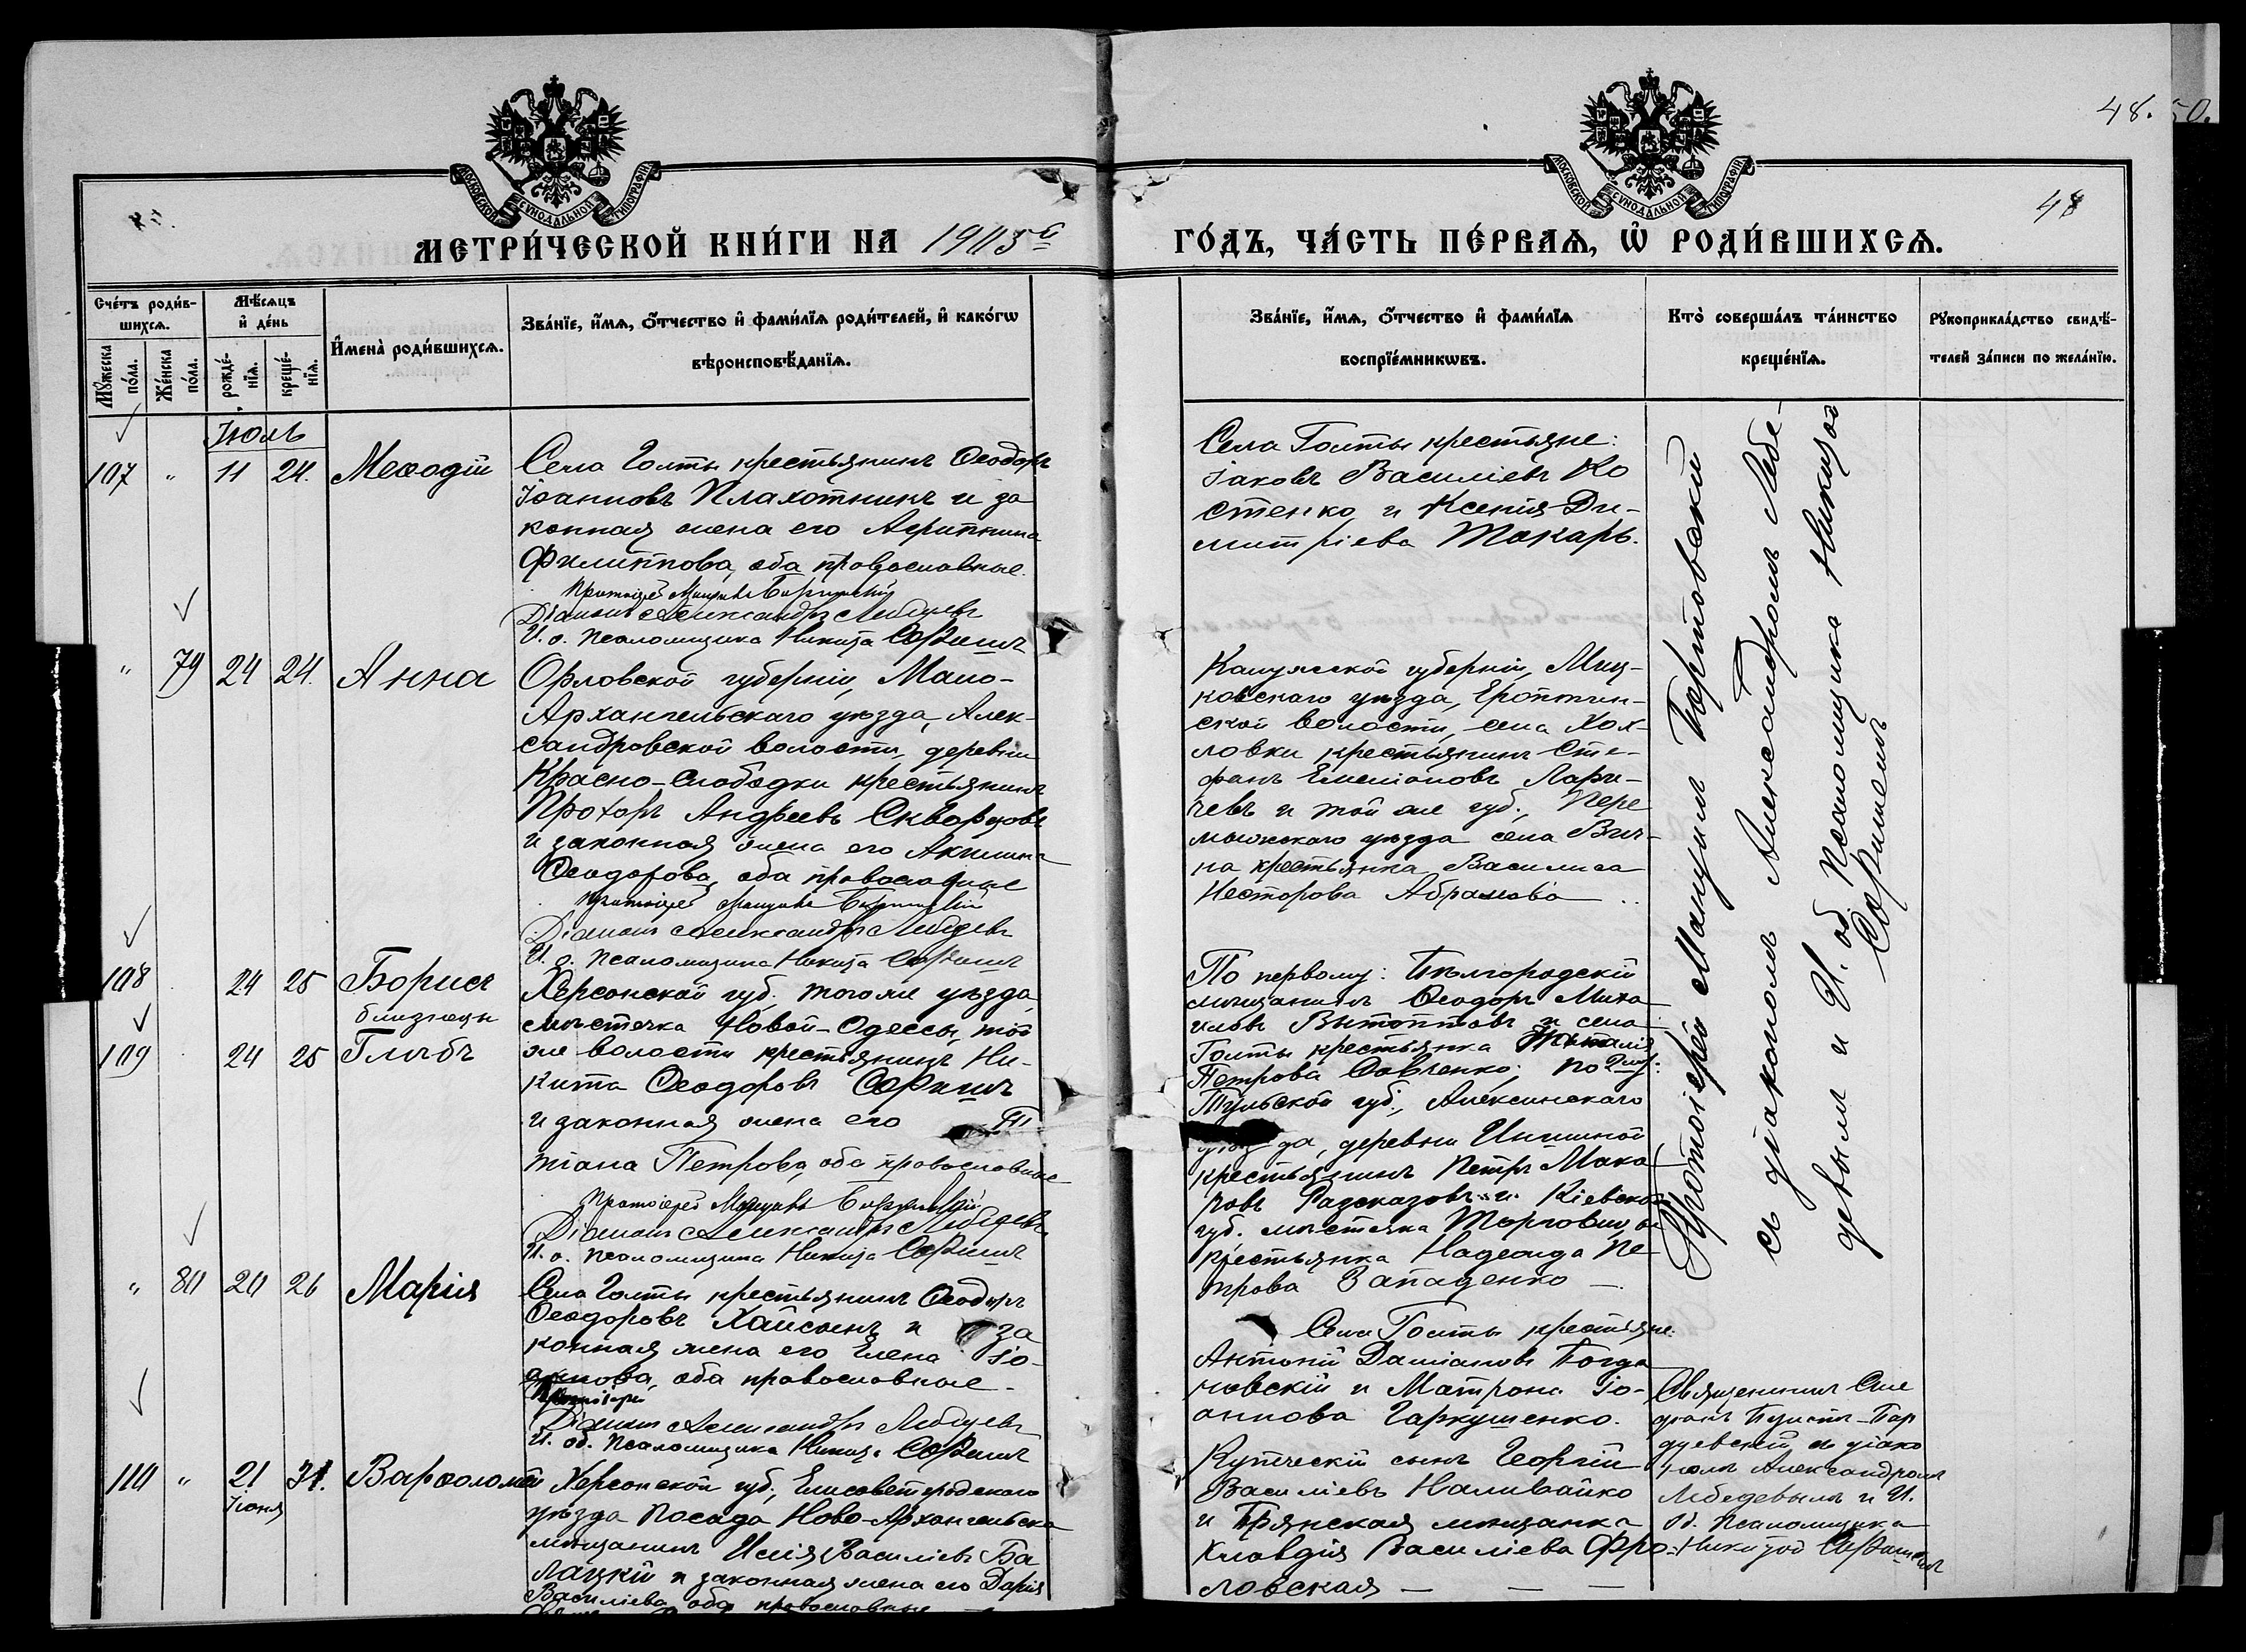 48. 50.
МОСКОВСКОЙ СѴНОДАЛЬНОЙ ТИПОГРАФІИ
МОСКОВСКОЙ СѴНОДАЛЬНОЙ ТИПОГРАФІИ
48
МЕТРИ́ЧЕСКОЙ КНИ́ГИ НА 1905 г
ГО́ДЪ, ЧА́СТЬ ПЕ́РВАѦ, Ѡ҆ РОДИ́ВШИХСѦ.
Сче́тъ роди́в-
шихсѧ.
Мꙋжеска по́ла.
Же́нска по́ла.
Мѣ́сѧцъ
и҆ де́нь
рожде́-
нїѧ.
креще́-
нїѧ.
И҆́мена̀ роди́вшихсѧ.
Зва́нїе, и҆́мѧ, ѻ҆́тчество и҆ фами́лїѧ роди́телей, и҆ како́гѡ
вѣроисповѣ́данїѧ.
Зва́нїе, и҆́мѧ, ѻ҆́тчество и҆ фами́лїѧ
воспрїе́мникѡвъ.
Кто̀ соверша́лъ та́инство
креще́нїѧ.
Рꙋкоприкла́дство свидѣ́-
телей за́писи по жела́нїю.
Іюль
107 " 11 24. Меѳодій
Села Голты крестьянинъ Ѳеодоръ
Іоанновъ Плахотникъ и за
конная жена его Агриппина
Филиппова, оба православные.
Протоіерей Мануилъ
Діаконъ Александръ Лебедевъ
И. о. псаломщика Никита
Села Голты крестьяне:
Іаковъ Василіевъ Ко
стенко и Ксенія Ди-
митріева Токарь.
" 79 24 24. Анна
Орловской губерніи, Мало-
Архангельскаго уѣзда, Алек-
сандровской волости, деревни
Красно-Слободки крестьянинъ
Прохоръ Андреевъ Скворцовъ
и законная жена его Акилина
Ѳеодорова, оба православные
Протоіерей Мануилъ
Діаконъ Александръ Лебедевъ
И. о. псаломщика Никита
Калужской губерніи,
уѣзда,
ской волости, села Хох-
ловки крестьянинъ Сте-
фанъ Емеліановъ Лари-
чевъ и той же губ., Пере
мышльскаго уѣзда села
крестьянка Василиса
Несторова Абрамова
108 24 25 Борисъ
близнецы
109 24 25 Глѣбъ
Херсонской губ. того же уѣзда,
мѣстечка Новой-Одессы, той
же волости крестьянинъ Ни-
кита Ѳеодоровъ
и законная жена его Та
тіана Петрова, оба православные
Протоіерей Мануилъ
Діаконъ Александръ Лебедевъ
И. о. псаломщика Никита
По первому: Бѣлгородскій
мѣщанинъ Ѳеодоръ Миха
иловъ и села
Голты крестьянка
Петрова Савченко; по
Тульской губ., Алексинскаго
уѣзда, деревни
крестьянинъ Петръ Мака
ровъ Разсказовъ и Кіевской
губ. мѣстечка Торговицы
крестьянка Надежда Пе
трова Западенко
" 80 20 26 Марія
Села Голты крестьянинъ Ѳеодоръ
Ѳеодоровъ и за
конная жена его Елена Іо-
аннова, оба православные.
Діаконъ Александръ Лебедевъ
И. об. псаломщика Никита
Села Голты крестьяне:
Антоній Даміановъ Богда
новскій и Матрона Іо-
аннова Гаркушенко.
110 " 21 31. Варѳоломей
Іюня
Херсонской губ., Елисаветградскаго
уѣзда посада Ново-Архангельска
мѣщанинъ Илія Василіевъ Ба
лацкій и законная жена его Дарія
Василіева, оба православные
Купеческій сынъ Георгій
Василіевъ Наливайко
и Брянская мѣщанка
Клавдія Василіева Фро-
ловская
Протоіерей Мануилъ
съ діакономъ Александромъ Лебе-
девымъ и И. об. псаломщика Никитой
Священникъ Сте
фанъ
съ діако
номъ Александромъ
Лебедевымъ и И.
об. псаломщика
Никитой